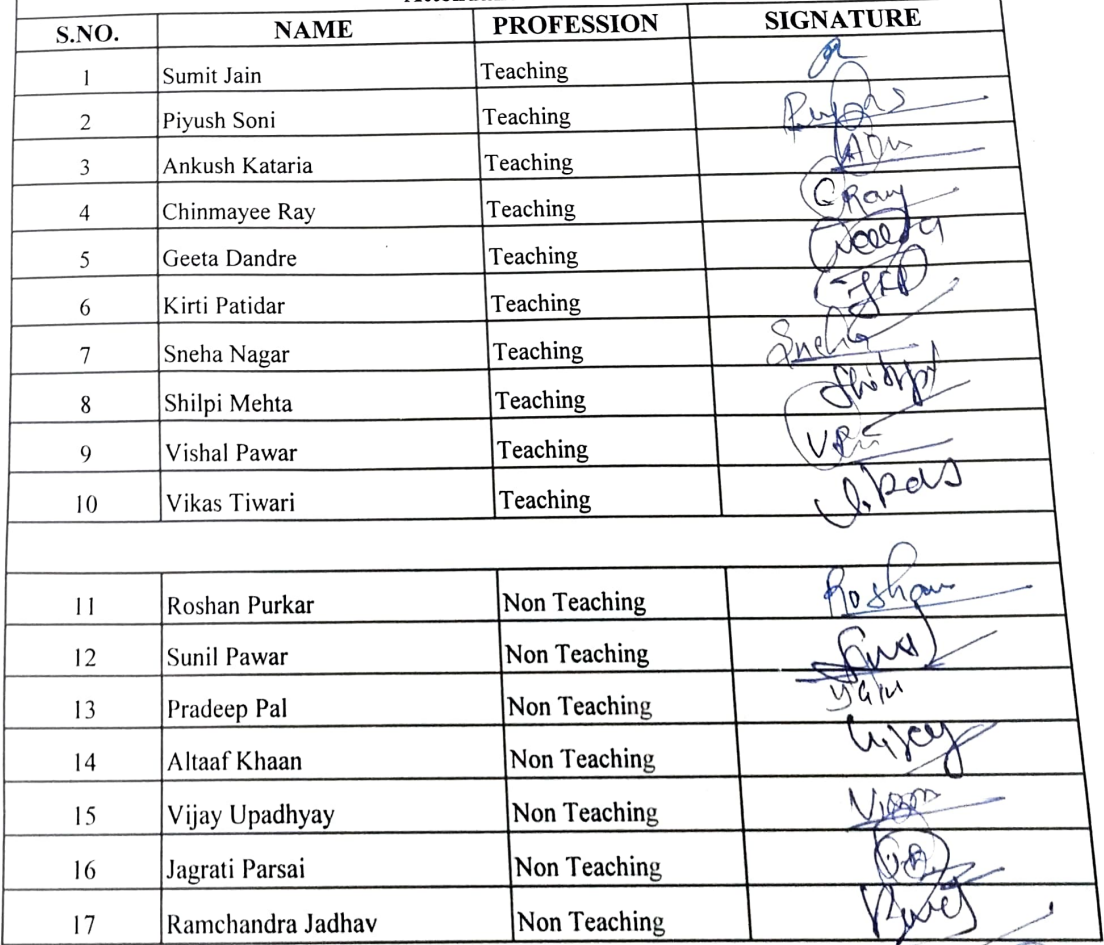 S.NO. NAME PROFESSION SIGNATURE
1 Sumit Jain Teaching
2 Piyush Soni Teaching
3 Ankush Kataria Teaching
4 Chinmayee Ray Teaching CRay
5 Geeta Dandre Teaching
6 Kirti Patidar Teaching
7 Sneha Nagar Teaching Sneha
8 Shilpi Mehta Teaching
9 Vishal Pawar Teaching
10 Vikas Tiwari Teaching
11 Roshan Purkar Non Teaching Roshan
12 Sunil Pawar Non Teaching
13 Pradeep Pal Non Teaching
14 Altaaf Khaan Non Teaching
15 Vijay Upadhyay Non Teaching
16 Jagrati Parsai Non Teaching
17 Ramchandra Jadhav Non Teaching